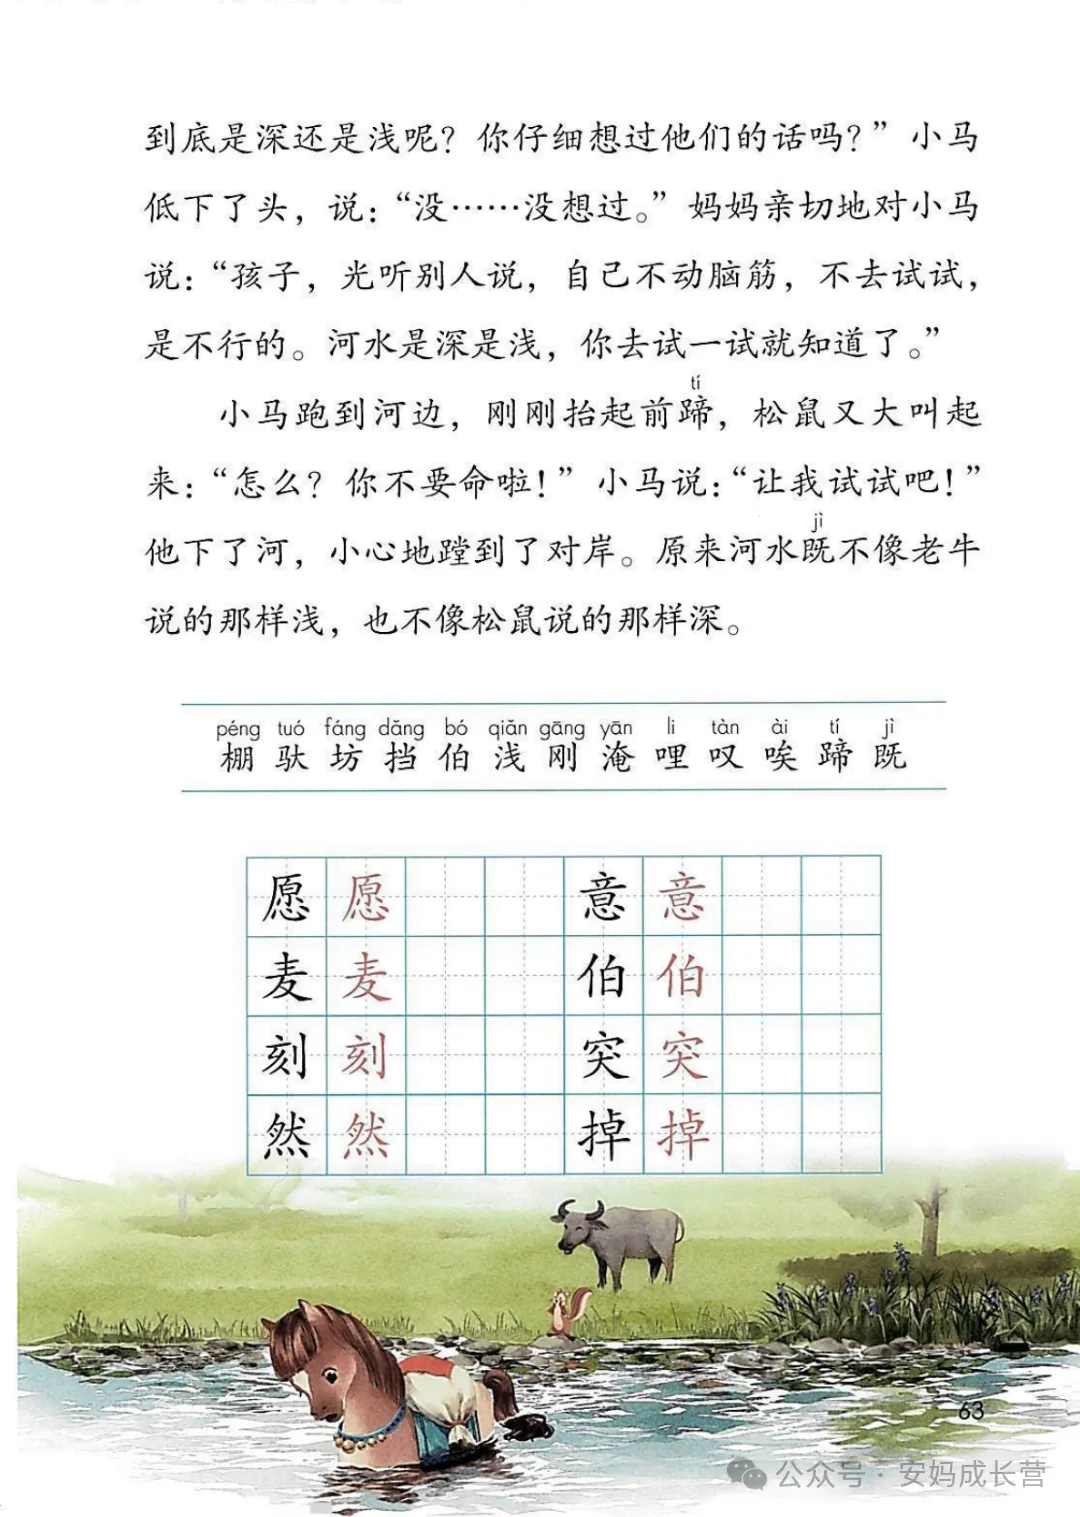 到底是深还是浅呢？你仔细想过他们的话吗？”小马
低下了头，说：“没……没想过。”妈妈亲切地对小马
说：“孩子，光听别人说，自己不动脑筋，不去试试，
是不行的。河水是深是浅，你去试一试就知道了。”
tí
小马跑到河边，刚刚抬起前蹄，松鼠又大叫起
来：“怎么？你不要命啦！”小马说：“让我试试吧！”
jì
他下了河，小心地蹚到了对岸。原来河水既不像老牛
说的那样浅，也不像松鼠说的那样深。
péng tuó fáng dǎng bó qiǎn gāng yān li tàn ài tí jì
棚 驮 坊 挡 伯 浅 刚 淹 哩 叹 唉 蹄 既
愿 愿 意 意
麦 麦 伯 伯
刻 刻 突 突
然 然 掉 掉
63
公众号·安妈成长营